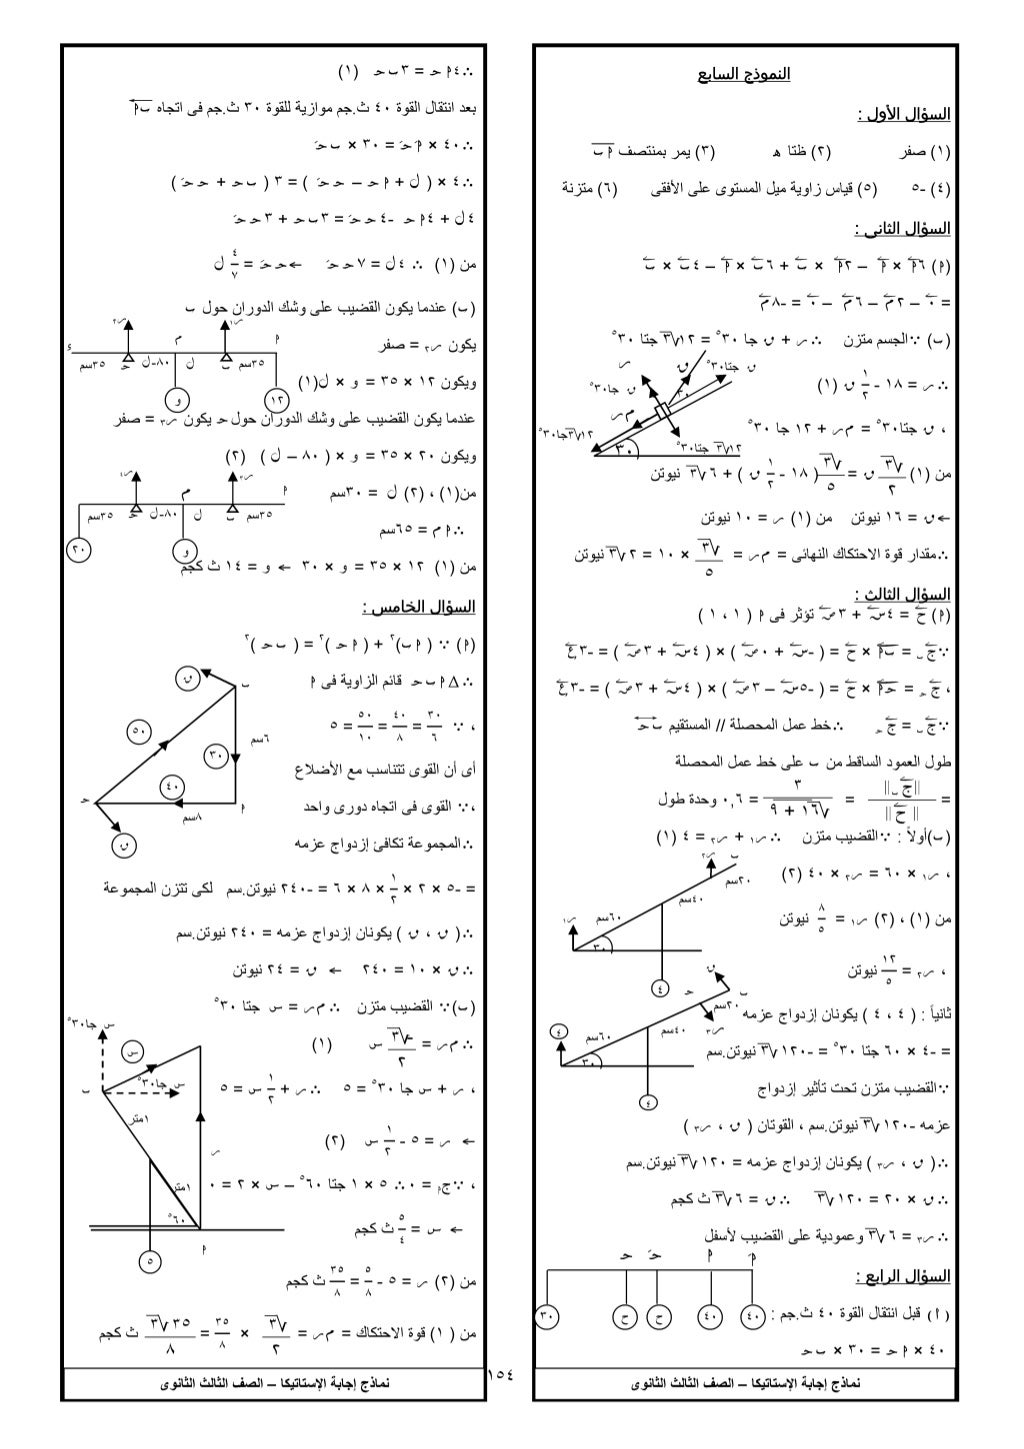 النموذج السابع
السؤال الأول :
(١) صفر (٢) ظتا ھ (٣) يمر بمنتصف ا ب
(٤) -٥ (٥) قياس زاوية ميل المستوى على الأفقى (٦) متزنة
السؤال الثانى :
(ا) ٦ا × ا – ٢ا × ب + ٦ب × ا – ٤ب × ب
= ٠ – ٢م – ٦م – ٠ = -٨م
(ب) ∵الجسم متزن ∴ر + ق جا ٣٠° = ١٢√٣ جتا ٣٠°
∴ر = ١٨ - ١/٢ ق (١)
، ق جتا٣٠° = م ر + ١٢ جا ٣٠°
من (١) √٣/٢ ق = √٣/٥ (١٨ - ١/٢ ق) + ٦√٣ نيوتن
←ق = ١٦ نيوتن من (١) ر = ١٠ نيوتن
∴مقدار قوة الاحتكاك النهائى = م ر = √٣/٥ × ١٠ = ٢√٣ نيوتن
السؤال الثالث :
(ا) ح = ٤س + ٣ص تؤثر فى ا ( ١ ، ١ )
∵ج ب = ب ا × ح = ( -س + ٠ص ) × ( ٤س + ٣ص ) = -٣ع
، ج حـ = حـ ا × ح = ( -٥س – ٣ص ) × ( ٤س + ٣ص ) = -٣ع
∵ج ب = ج حـ ∴خط عمل المحصلة // المستقيم ب حـ
طول العمود الساقط من ب على خط عمل المحصلة
= ||ج ب|| / ||ح|| = ٣ / √(١٦ + ٩) = ٠,٦ وحدة طول
(ب)أولاً : ∵القضيب متزن ∴ر١ + ر٢ = ٤ (١)
، ر١ × ٦٠ = ر٢ × ٤٠ (٢)
من (١) ، (٢) ر١ = ٨/٥ نيوتن
، ر٢ = ١٢/٥ نيوتن
ثانياً : ( ٤ ، ٤ ) يكونان إزدواج عزمه
= -٤ × ٦٠ جتا ٣٠° = -١٢٠√٣ نيوتن.سم
∵القضيب متزن تحت تأثير إزدواج
عزمه -١٢٠√٣ نيوتن.سم ، القوتان ( ق ، ر٣ )
∴( ق ، ر٣ ) يكونان إزدواج عزمه = ١٢٠√٣ نيوتن.سم
∴ق × ٢٠ = ١٢٠√٣ ∴ق = ٦√٣ ث كجم
∴ر٣ = ٦√٣ وعمودية على القضيب لأسفل
السؤال الرابع :
( أ ) قبل انتقال القوة ٤٠ ث.جم :
٤٠ × ا حـ = ٣٠ × ب حـ
نماذج إجابة الإستاتيكا – الصف الثالث الثانوى
∴٤ ا حـ = ٣ ب حـ (١)
بعد انتقال القوة ٤٠ ث.جم موازية للقوة ٣٠ ث.جم فى اتجاه ب ا
∴٤٠ × اَ حـَ = ٣٠ × ب حـَ
∴٤ × ( ل + ا حـ – حـ حـَ ) = ٣ ( ب حـ + حـ حـَ )
٤ل + ٤ا حـ -٤حـ حـَ = ٣ب حـ + ٣حـ حـَ
من (١) ∴ ٤ل = ٧حـ حـَ ←حـ حـَ = ٤/٧ ل
(ب) عندما يكون القضيب على وشك الدوران حول ب
يكون ر٢ = صفر
ويكون ١٢ × ٣٥ = و × ل(١)
عندما يكون القضيب على وشك الدوران حول حـ يكون ر١ = صفر
ويكون ٢٠ × ٣٥ = و × ( ٨٠ – ل ) (٢)
من(١) ، (٢) ل = ٣٠سم
∴ا م = ٦٥سم
من (١) ١٢ × ٣٥ = و × ٣٠ ← و = ١٤ ث كجم
السؤال الخامس :
(ا) ∵ ( ا ب)٢ + ( ا حـ )٢ = ( ب حـ )٢
∴Δ ا ب حـ قائم الزاوية فى ا
، ∵ ٣٠/٦ = ٤٠/٨ = ٥٠/١٠ = ٥
أى أن القوى تتناسب مع الأضلاع
،∵ القوى فى اتجاه دورى واحد
∴المجموعة تكافئ إزدواج عزمه
= -٥ × ٢ × ١/٢ × ٨ × ٦ = -٢٤٠ نيوتن.سم لكى تتزن المجموعة
∴( ق ، ق ) يكونان إزدواج عزمه = ٢٤٠ نيوتن.سم
∴ق × ١٠ = ٢٤٠ ← ق = ٢٤ نيوتن
(ب)∵ القضيب متزن ∴م ر = س جتا ٣٠°
∴م ر = √٣/٢ س (١)
، ر + س جا ٣٠° = ٥ ∴ر + ١/٢ س = ٥
← ر = ٥ - ١/٢ س (٢)
، ∵ج ا = ٠ ∴ ٥ × ١ جتا ٦٠° – س × ٢ = ٠
← س = ٥/٤ ث كجم
من (٢) ر = ٥ - ٥/٨ = ٣٥/٨ ث كجم
من ( ١) قوة الاحتكاك = م ر = √٣/٢ × ٣٥/٨ = ٣٥√٣/٨ ث كجم
نماذج إجابة الإستاتيكا – الصف الثالث الثانوى
١٥٤